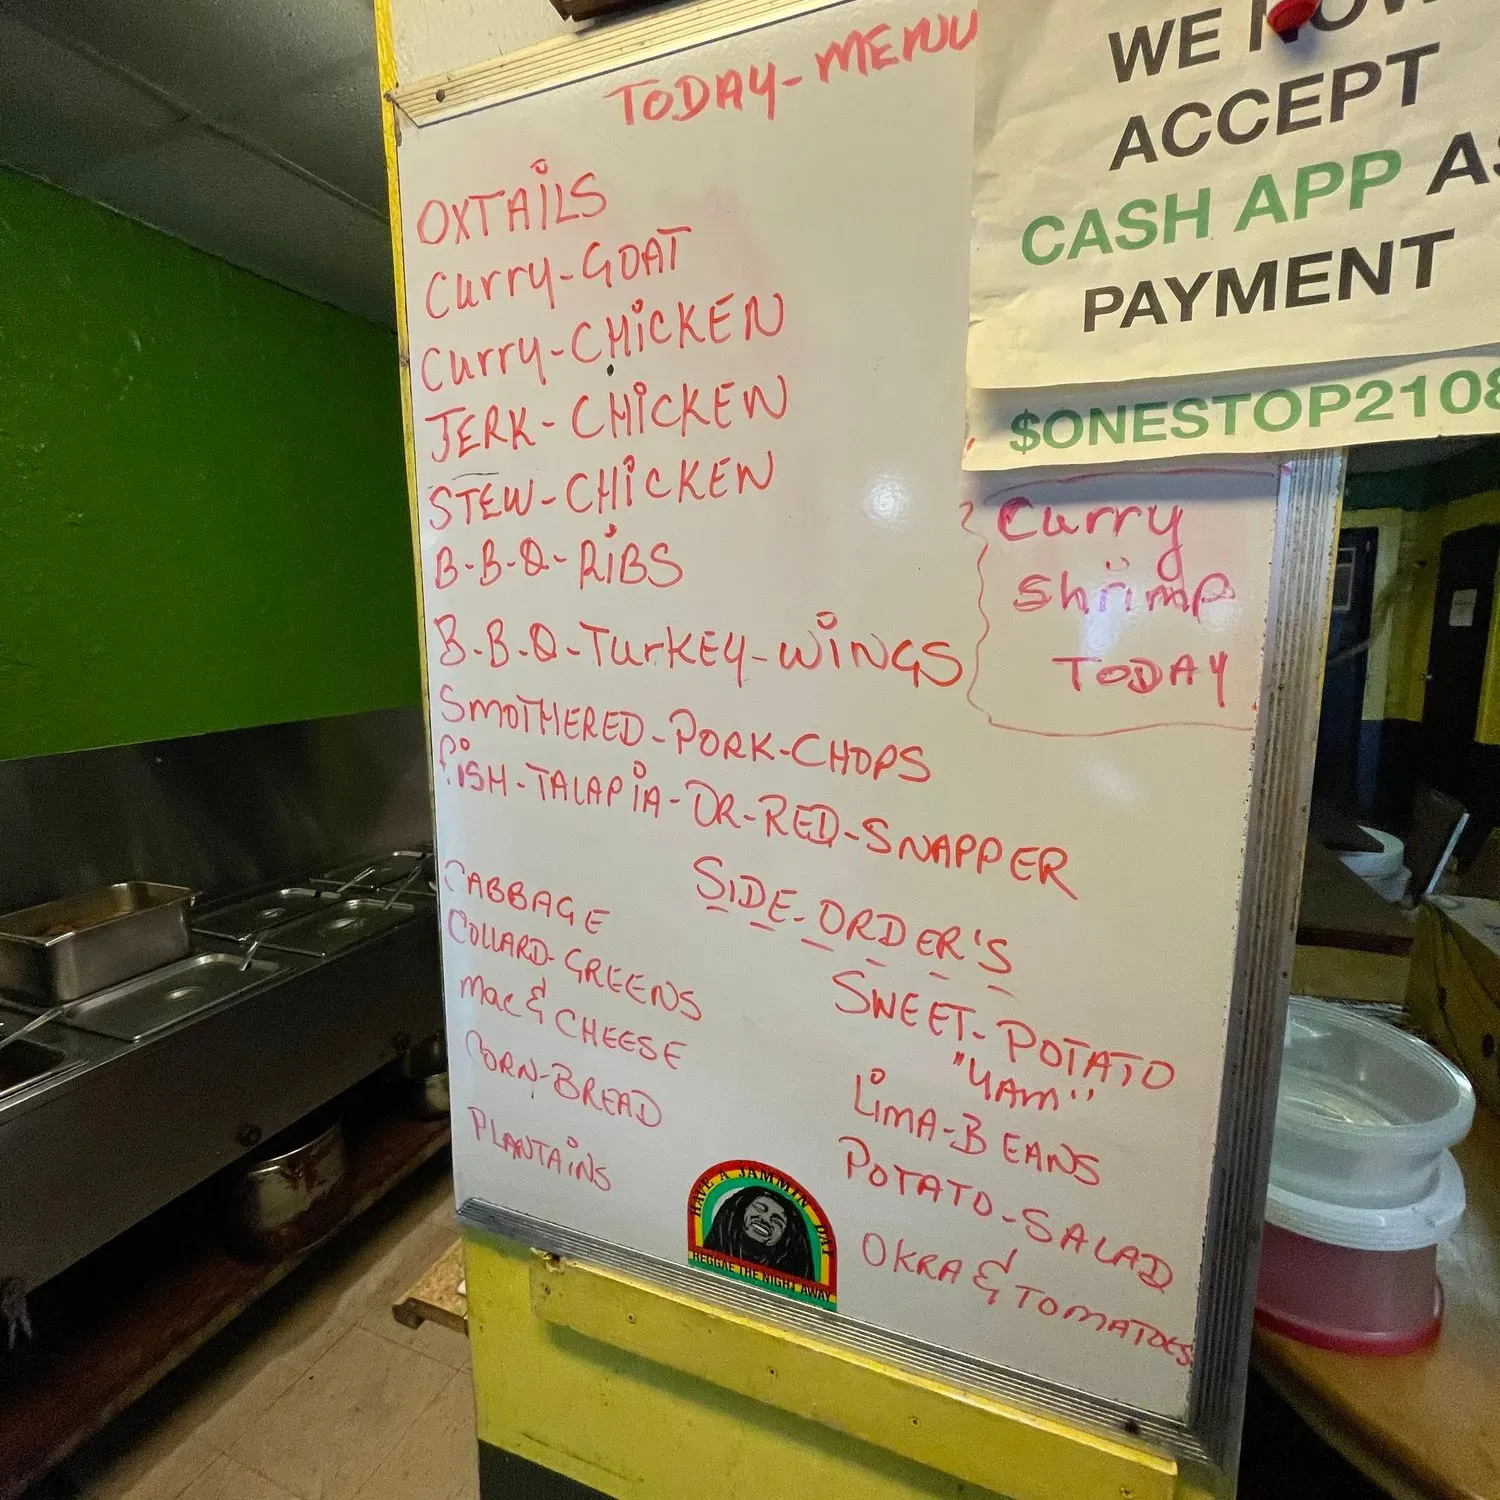 TODAY-MENU
OXTAiLS
Curry-GOAT
Curry-CHiCKEN
JERK-CHiCKEN
STEW-CHiCKEN
B-B-Q-RiBS
B-B-Q-TurKEY-WiNGS
SMOTHERED-PORK-CHOPS
fiSH-TALAPiA-OR-RED-SNAPPER
Curry
Shrimp
TODAY
SIDE-ORDER'S
CABBAGE
COLLARD-GREENS
Mac & CHEESE
CORN-BREAD
PLANTAiNS
SWEET-POTATO
"YAM"
LiMA-BEANS
POTATO-SALAD
OKRA & TOMATOES
HAVE A JAMMIN' DAY
REGGAE THE NIGHT AWAY
WE NOW
ACCEPT
CASH APP AS
PAYMENT
$ONESTOP2108